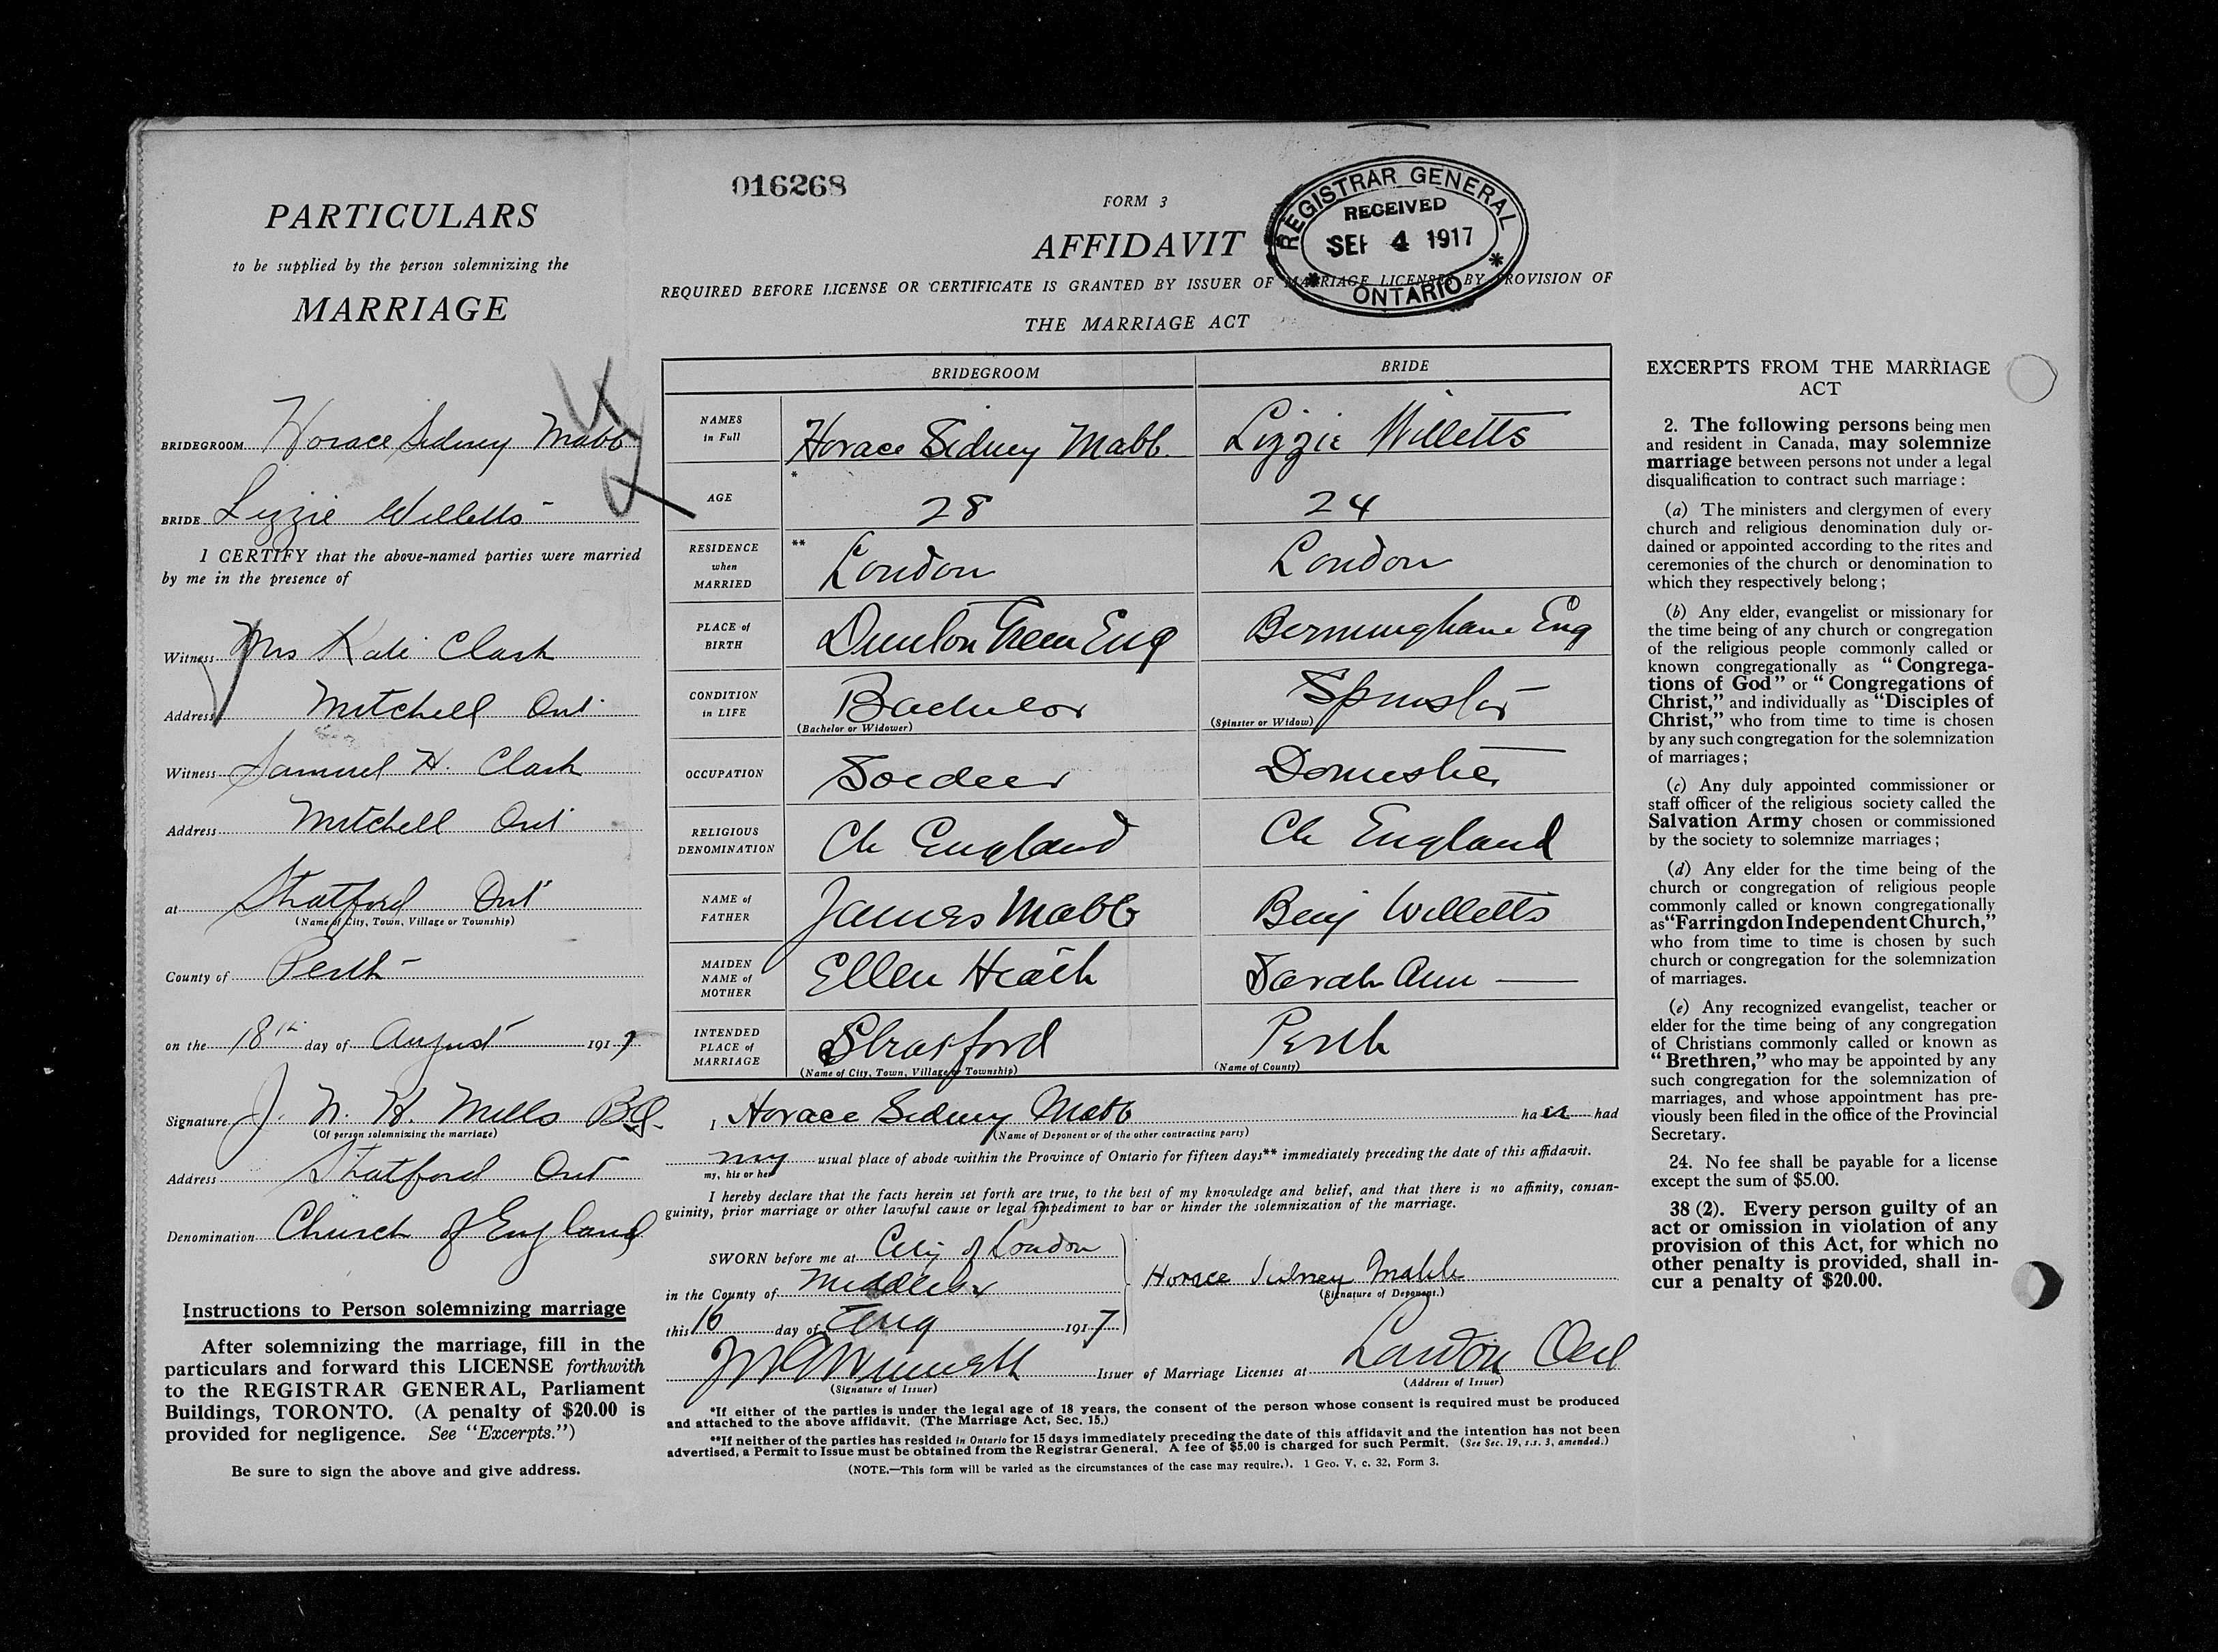 016268
PARTICULARS
to be supplied by the person solemnizing the
MARRIAGE
BRIDEGROOM Horace Sidney Mabb
BRIDE Lizzie Willetts
I CERTIFY that the above-named parties were married
by me in the presence of
Witness Mrs Kate Clark
Address Mitchell Ont
Witness Samuel H. Clark
Address Mitchell Ont
at Stratford Ont
(Name of City, Town, Village or Township)
County of Perth
on the 18th day of August 1917
Signature J. N. H. Mills
(Of person solemnizing the marriage)
Address Stratford Ont
Denomination Church of England
Instructions to Person solemnizing marriage
After solemnizing the marriage, fill in the
particulars and forward this LICENSE forthwith
to the REGISTRAR GENERAL, Parliament
Buildings, TORONTO. (A penalty of $20.00 is
provided for negligence. See "Excerpts.")
Be sure to sign the above and give address.
FORM 3
AFFIDAVIT
REGISTRAR GENERAL
RECEIVED
SEP 4 1917
* ONTARIO *
REQUIRED BEFORE LICENSE OR CERTIFICATE IS GRANTED BY ISSUER OF MARRIAGE LICENSES BY PROVISION OF
THE MARRIAGE ACT
BRIDEGROOM BRIDE
NAMES in Full Horace Sidney Mabb. Lizzie Willetts
AGE * 28 24
RESIDENCE when MARRIED ** London London
PLACE of BIRTH Dunton Green Eng Bermingham Eng
CONDITION in LIFE Bachelor Spinster
(Bachelor or Widower) (Spinster or Widow)
OCCUPATION Soldier Domestic
RELIGIOUS DENOMINATION Ch England Ch England
NAME of FATHER James Mabb Benj Willetts
MAIDEN NAME of MOTHER Ellen Heath Sarah Ann —
INTENDED PLACE of MARRIAGE Stratford Perth
(Name of City, Town, Village or Township) (Name of County)
I Horace Sidney Mabb ha ve had
(Name of Deponent or of the other contracting party)
my usual place of abode within the Province of Ontario for fifteen days** immediately preceding the date of this affidavit.
my, his or her
I hereby declare that the facts herein set forth are true, to the best of my knowledge and belief, and that there is no affinity, consan-
guinity, prior marriage or other lawful cause or legal impediment to bar or hinder the solemnization of the marriage.
SWORN before me at City of London
in the County of Middlesex
this 16 day of Aug 1917
Horace Sidney Mabb
(Signature of Deponent.)
Issuer of Marriage Licenses at London Ont
(Signature of Issuer) (Address of Issuer)
*If either of the parties is under the legal age of 18 years, the consent of the person whose consent is required must be produced
and attached to the above affidavit. (The Marriage Act, Sec. 15.)
**If neither of the parties has resided in Ontario for 15 days immediately preceding the date of this affidavit and the intention has not been
advertised, a Permit to Issue must be obtained from the Registrar General. A fee of $5.00 is charged for such Permit. (See Sec. 19, s.s. 3, amended.)
(NOTE.—This form will be varied as the circumstances of the case may require.). 1 Geo. V, c. 32, Form 3.
EXCERPTS FROM THE MARRIAGE
ACT
2. The following persons being men
and resident in Canada, may solemnize
marriage between persons not under a legal
disqualification to contract such marriage:
(a) The ministers and clergymen of every
church and religious denomination duly or-
dained or appointed according to the rites and
ceremonies of the church or denomination to
which they respectively belong;
(b) Any elder, evangelist or missionary for
the time being of any church or congregation
of the religious people commonly called or
known congregationally as "Congrega-
tions of God" or "Congregations of
Christ," and individually as "Disciples of
Christ," who from time to time is chosen
by any such congregation for the solemnization
of marriages;
(c) Any duly appointed commissioner or
staff officer of the religious society called the
Salvation Army chosen or commissioned
by the society to solemnize marriages;
(d) Any elder for the time being of the
church or congregation of religious people
commonly called or known congregationally
as "Farringdon Independent Church,"
who from time to time is chosen by such
church or congregation for the solemnization
of marriages.
(e) Any recognized evangelist, teacher or
elder for the time being of any congregation
of Christians commonly called or known as
"Brethren," who may be appointed by any
such congregation for the solemnization of
marriages, and whose appointment has pre-
viously been filed in the office of the Provincial
Secretary.
24. No fee shall be payable for a license
except the sum of $5.00.
38 (2). Every person guilty of an
act or omission in violation of any
provision of this Act, for which no
other penalty is provided, shall in-
cur a penalty of $20.00.